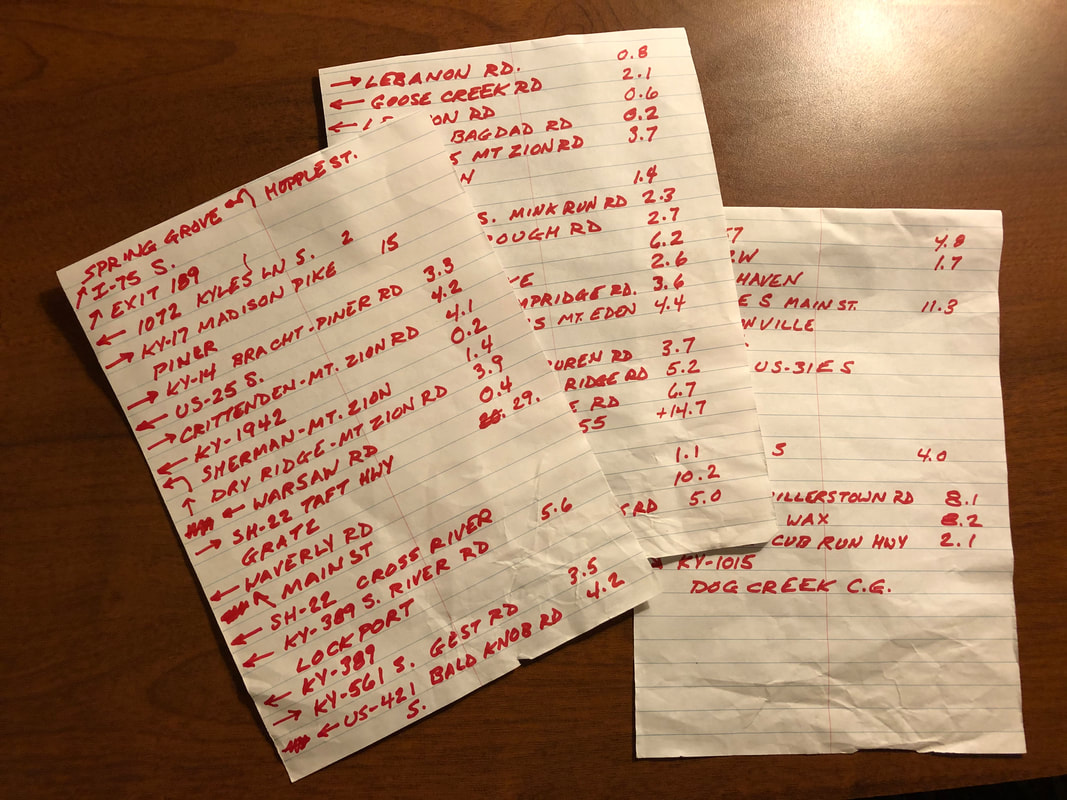 SPRING GROVE HOPPLE ST.
↑ I-75 S.
↑ EXIT 189
← 1072 KYLES LN S. 2
→ KY-17 MADISON PIKE 15
PINER
→ KY-14 BRACHT-PINER RD 3.3
← US-25 S. 4.2
→ CRITTENDEN-MT. ZION RD 4.1
← KY-1942 0.2
SHERMAN-MT. ZION 1.4
↑ DRY RIDGE-MT ZION RD 3.9
← WARSAW RD 0.4
→ SH-22 TAFT HWY 29.
GRATZ
← WAVERLY RD
MAIN ST
← SH-22 CROSS RIVER
← KY-389 S. RIVER RD 5.6
LOCKPORT
← KY-389
→ KY-561 S. GEST RD 3.5
← US-421 BALD KNOB RD 4.2
S.
→ LEBANON RD. 0.8
← GOOSE CREEK RD 2.1
← ON RD 0.6
BAGDAD RD 0.2
S MT ZION RD 3.7
N
S. MINK RUN RD 1.4
OUGH RD 2.3
2.7
6.2
VE 2.6
MPRIDGE RD. 3.6
S MT. EDEN 4.4
UREN RD 3.7
RIDGE RD 5.2
E RD 6.7
55 +14.7
1.1
10.2
RD 5.0
7 4.8
W 1.7
HAVEN
E S MAIN ST. 11.3
WVILLE
US-31E S
S 4.0
ILLERSTOWN RD 8.1
WAX 8.2
CUB RUN HWY 2.1
KY-1015
DOG CREEK C.G.